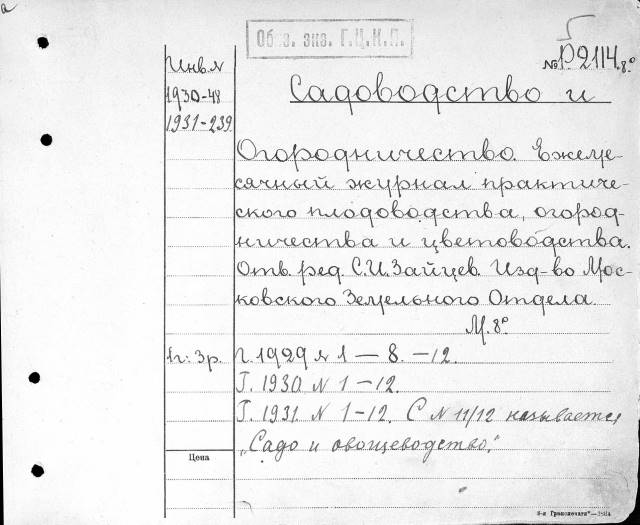 а
Обяз. экз. Г.Ц.К.П.
№ Р2114. 8.º
Инв. №
1930-48
1931-239
Садоводство и
Огородничество. Ежеме-
сячный журнал практиче-
ского плодоводства, огород-
ничества и цветоводства.
Отв. ред. С.И. Зайцев. Изд-во Мос-
ковского Земельного Отдела.
М. 8º
1г: 3р.
Г. 1929 № 1 — 8. —12.
Г. 1930 № 1 —12.
Г. 1931. № 1—12. С № 11/12 называется
„Садо и овощеводство."
Цена